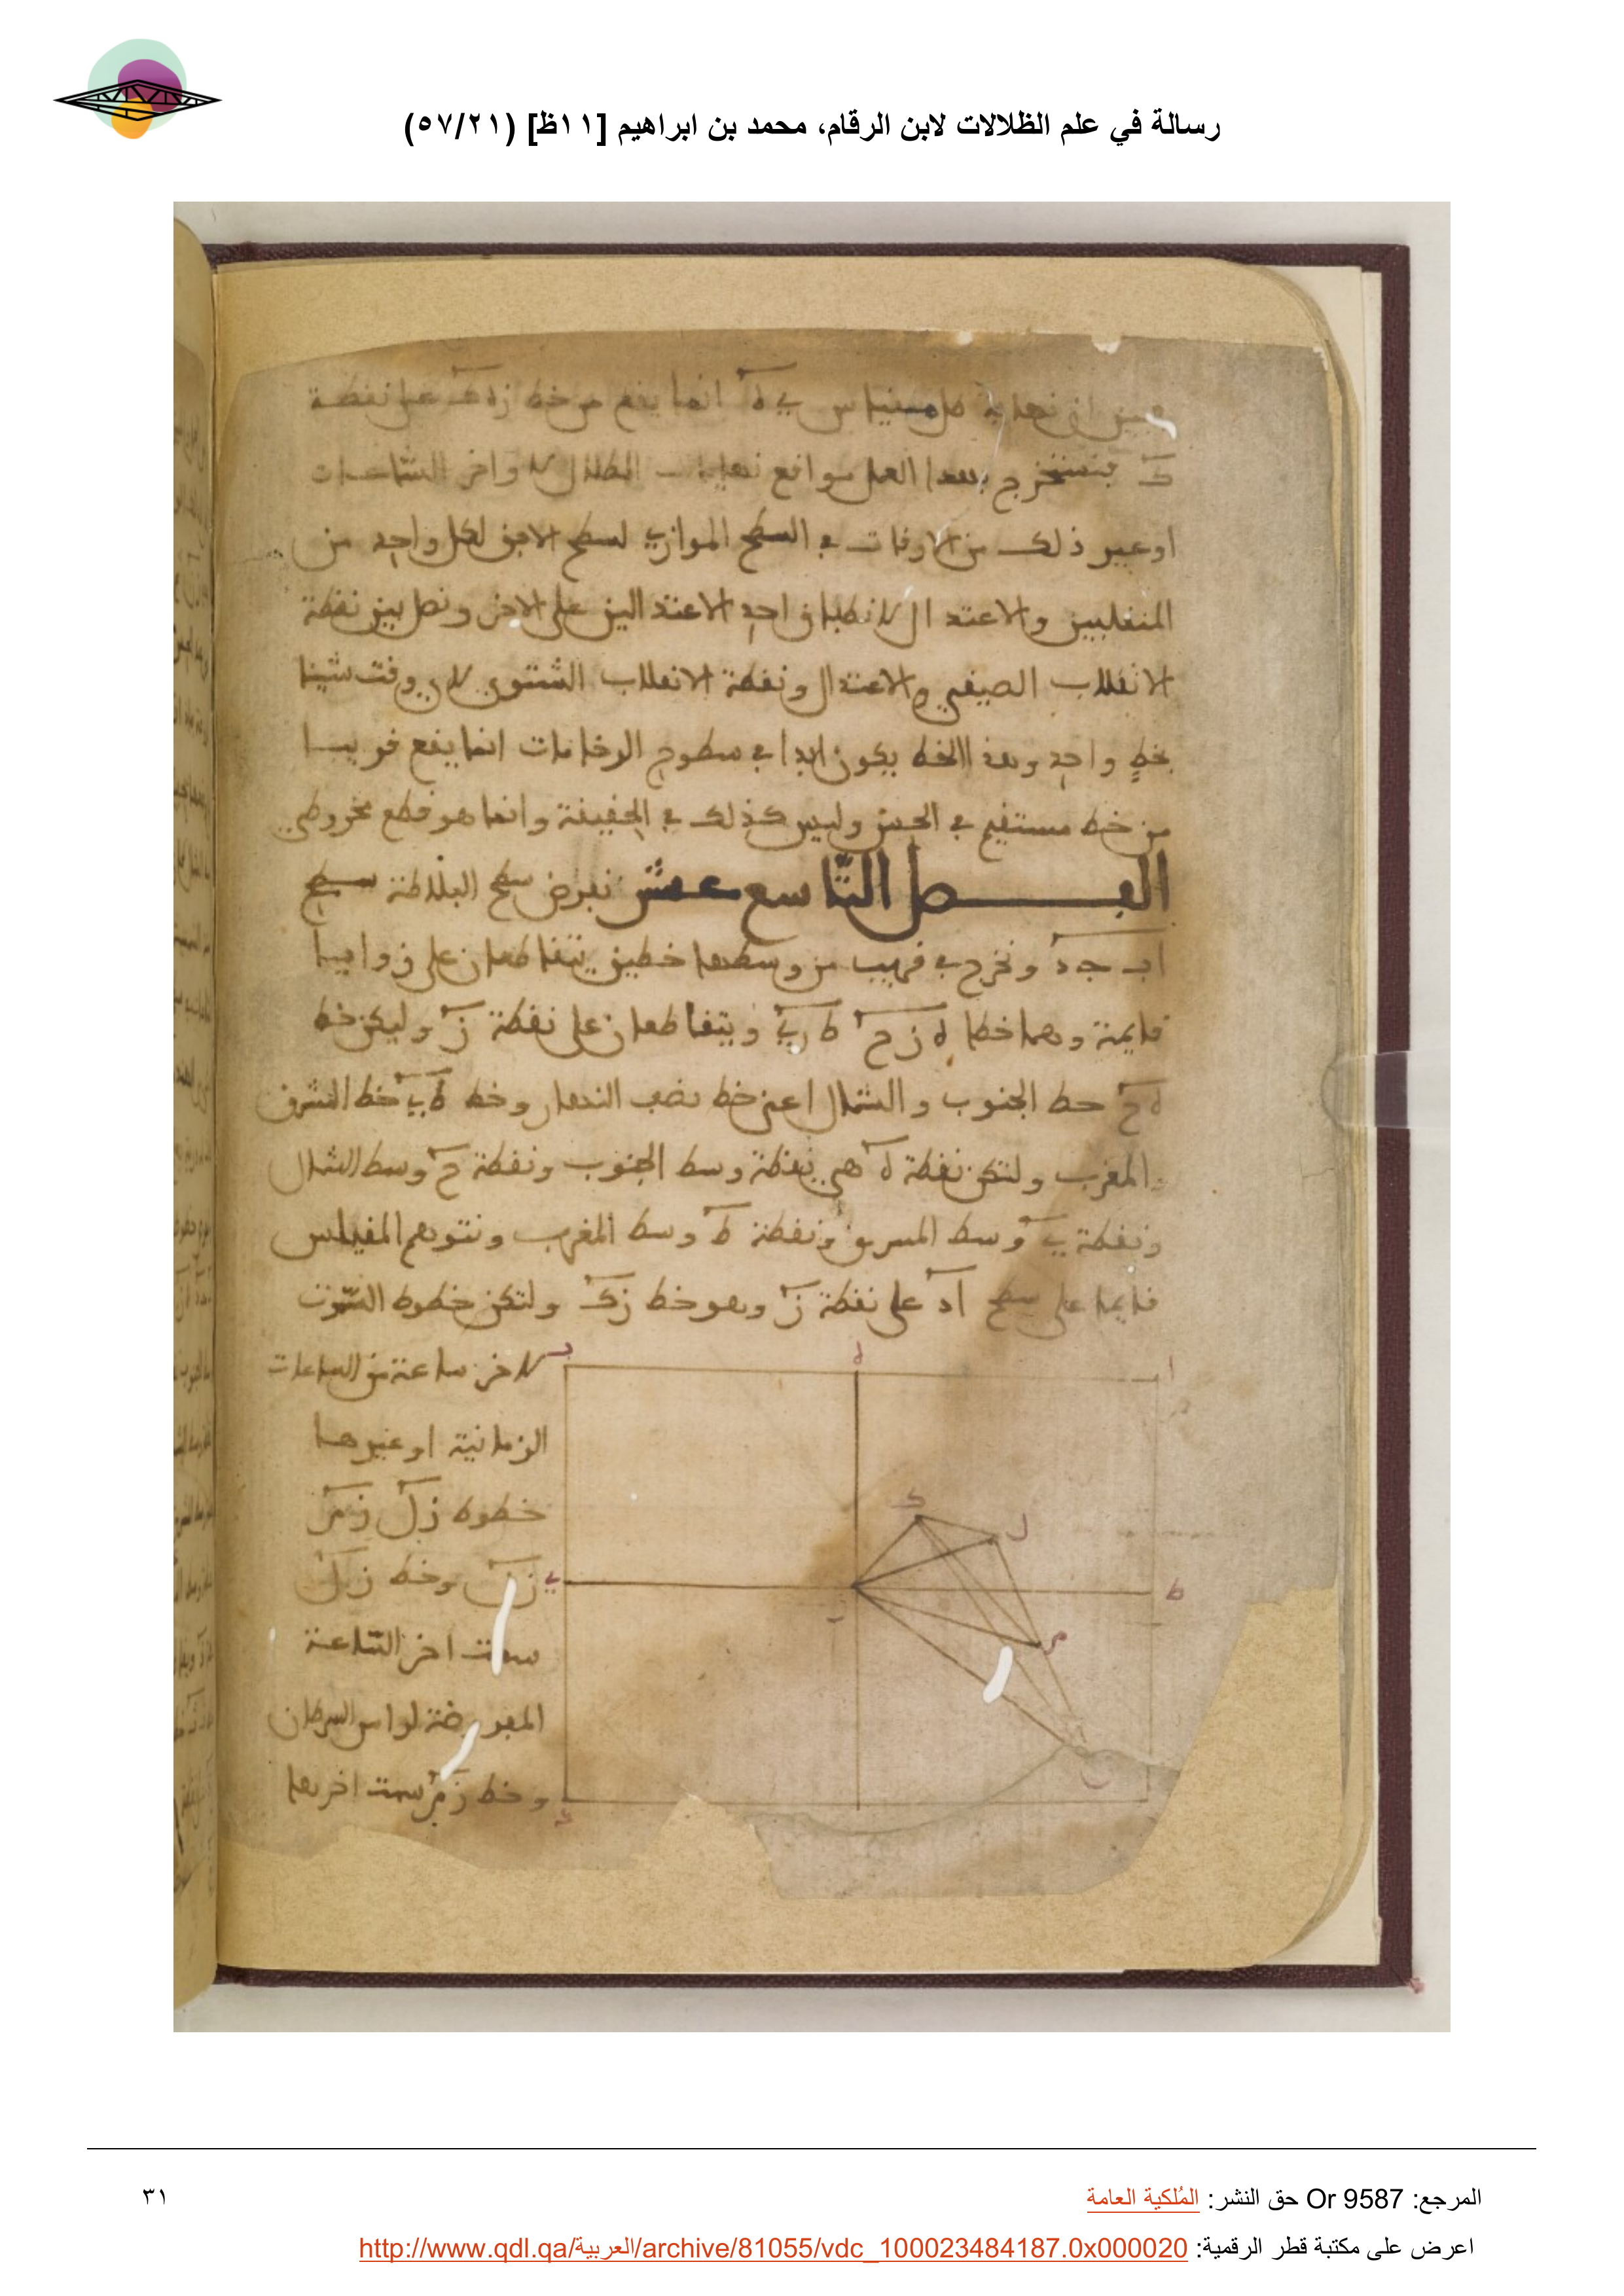 رسالة في علم الظلالات لابن الرقام، محمد بن ابراهيم [١١ظ] (٥٧/٢١)
ان نهاية ظل مقياس انما يقع من خط على نقطة
ك فنستخرج بهذا العمل مواقع نهايات الظلال لاواخر الساعات
او غير ذلك من الاوقات في السطح الموازي لسطح الافق لكل واحد من
المنقلبين والاعتدال لانطباق احد الاعتدالين على الاخر ونصل بين نقطة
الانقلاب الصيفي والاعتدال ونقطة الانقلاب الشتوي لاي وقت شينا
بخط واحد وهذا الخط يكون ابدا في سطوح الرخامات انما يقع قريبا
من خط مستقيم في الحس وليس كذلك في الحقيقة وانما هو قطع مخروطي
الفصل التاسع عشر نفرض سطح البلاطة سطح
اب جد ونخرج في قريب من وسطها خطين يتقاطعان على زوايا
قايمة وهما خطا ه ز ح ط ز ي ويتقاطعان على نقطة ز وليكن خط
ه ح خط الجنوب والشمال اعني خط نصف النهار وخط ط ي خط المشرق
والمغرب ولتكن نقطة ه هي نقطة وسط الجنوب ونقطة ح وسط الشمال
ونقطة ي وسط المشرق ونقطة ط وسط المغرب ونتوهم المقياس
قايما على سطح اد على نقطة ز وهو خط زك ولتكن خطوط السموت
لاخر ساعة من الساعات
الزمانية او غيرها
خطوط زل زم
زن وخط زل
سمت اخر الساعة
المفروضة لراس السرطان
وخط زم سمت اخرها
ا
ه
ب
ك
ل
ي
ط
م
ن
د
المرجع: Or 9587 حق النشر: المُلكية العامة
٣١
اعرض على مكتبة قطر الرقمية: http://www.qdl.qa/العربية/archive/81055/vdc_100023484187.0x000020